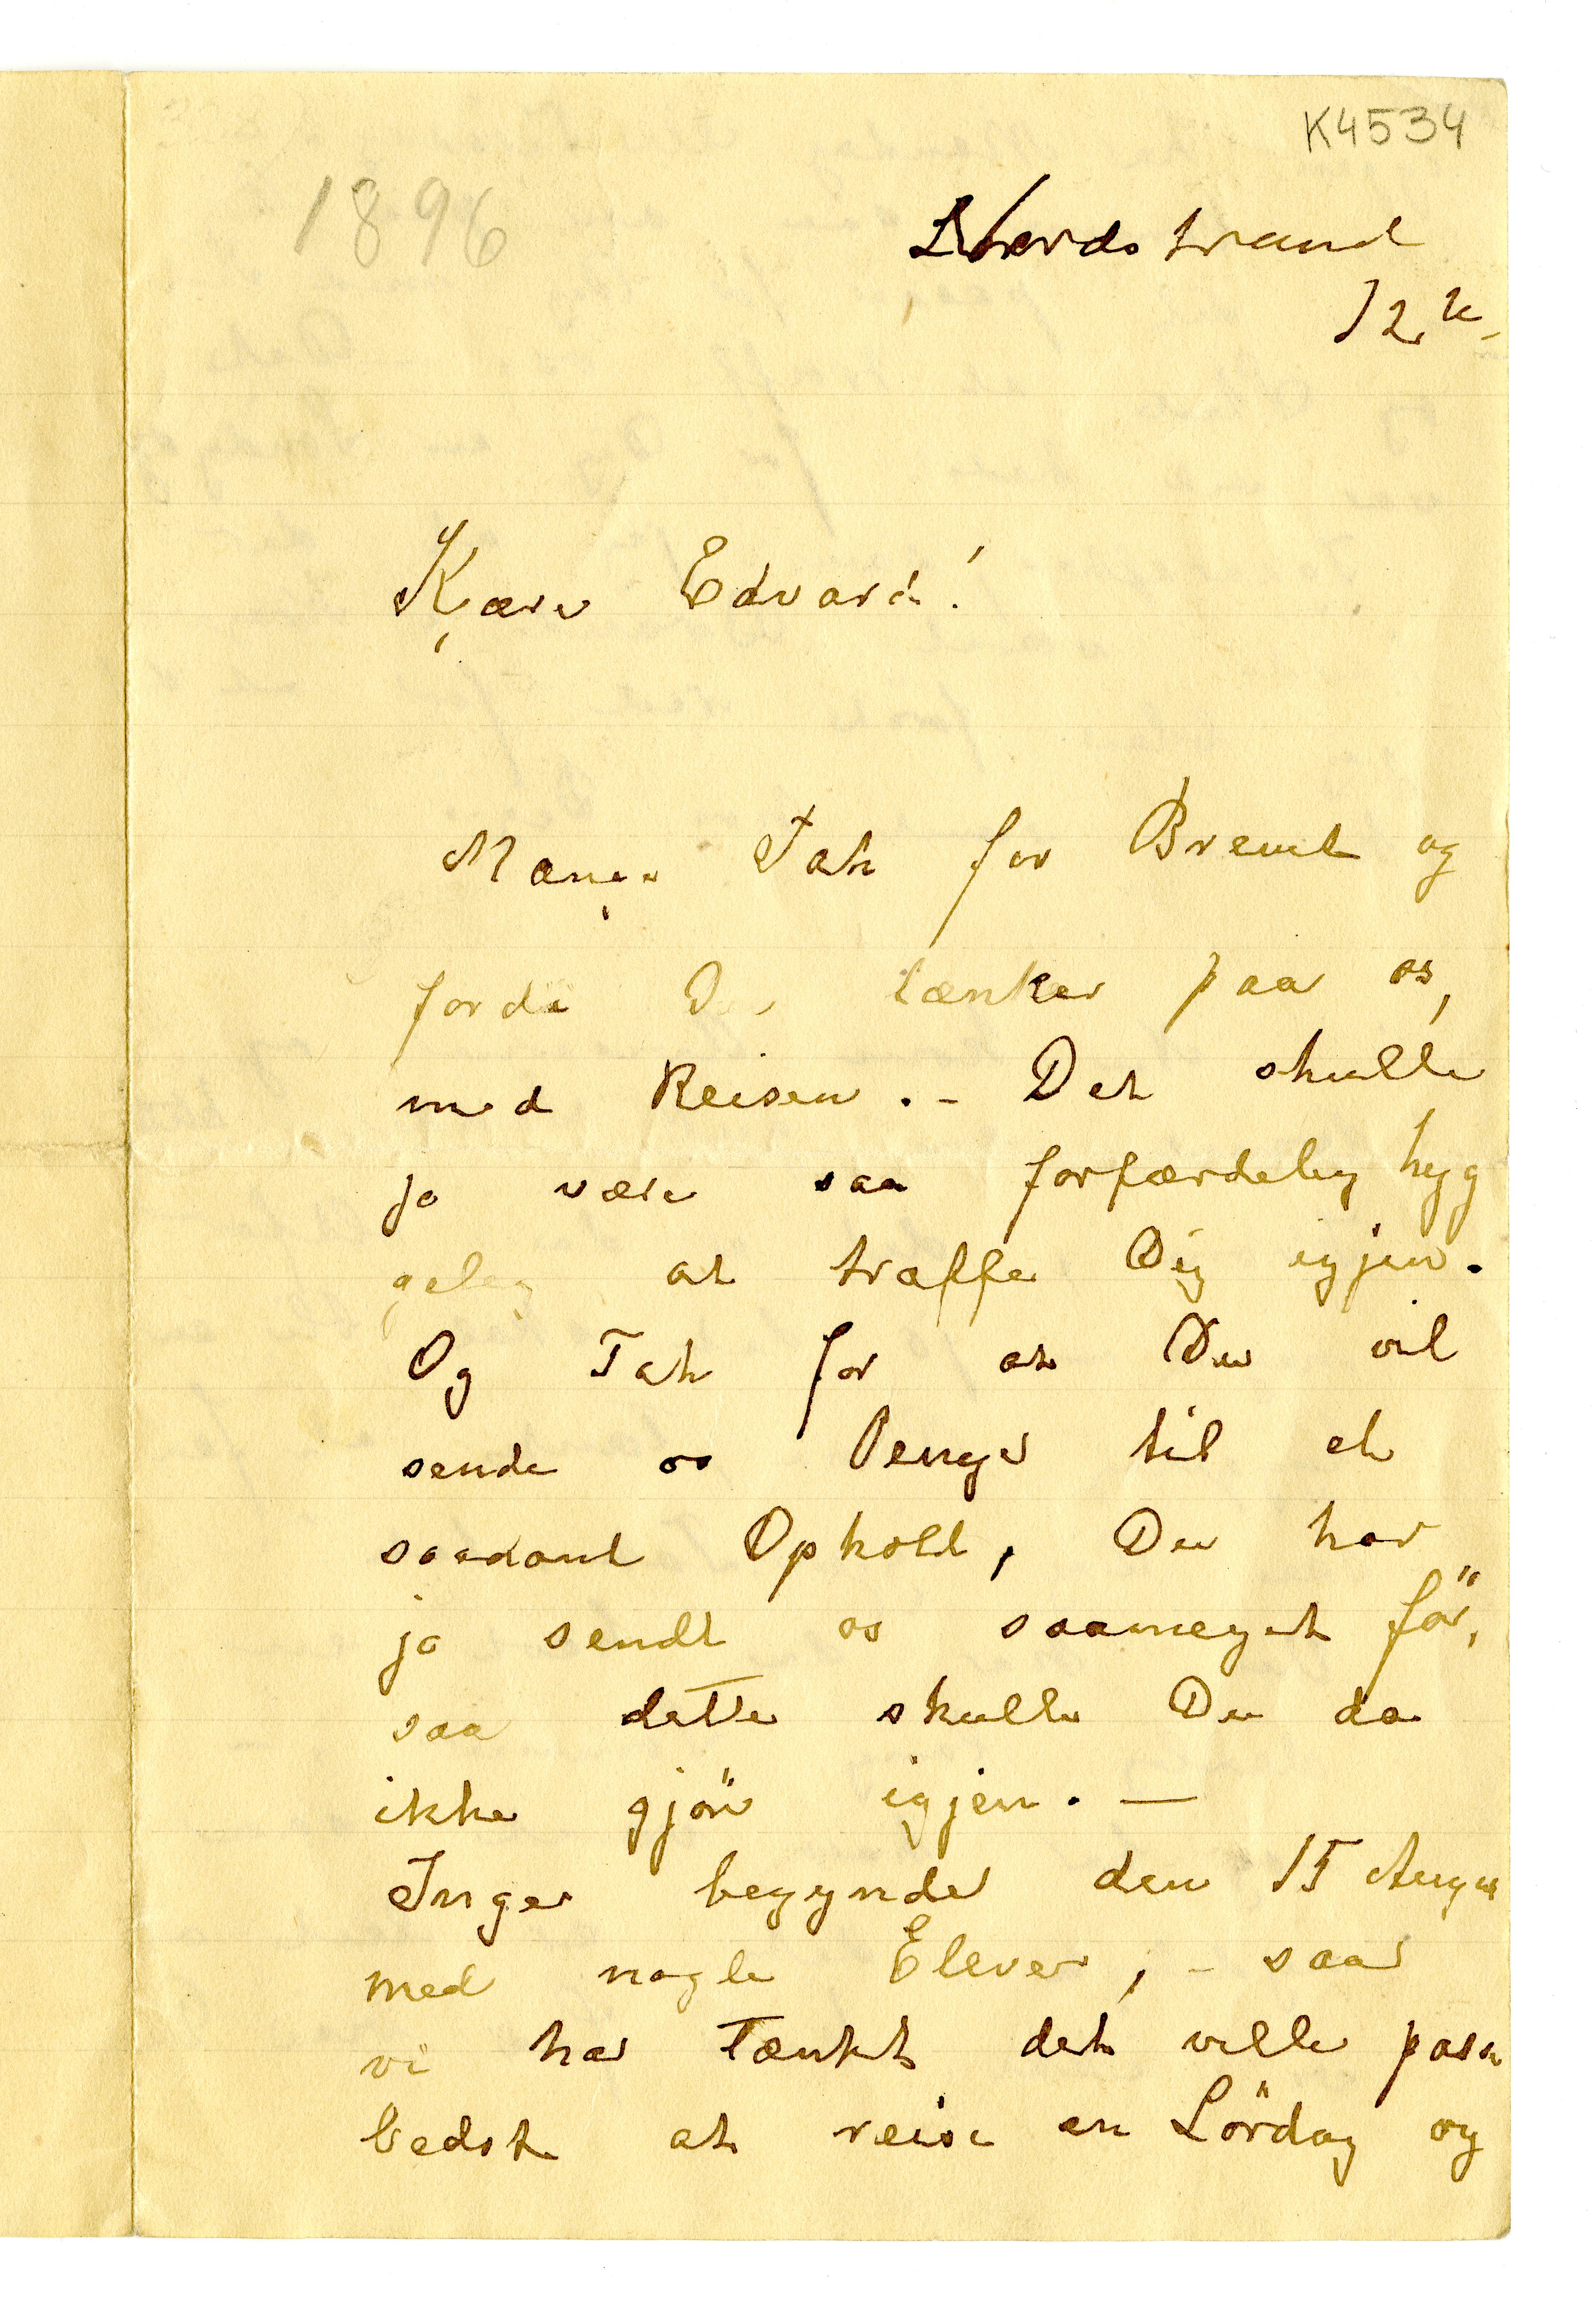 K4534
1896
Nordstrand
12te
Kjære Edvard!
Mange Tak for Brevet og
fordi Du tænker paa os,
med Reisen. – Det skulle
jo være saa forfærdelig hyg
gelig at træffe Dig igjen.
Og Tak for at Du vil
sende os Penge til et
saadant Ophold, Du har
jo sendt os saameget för,
saa dette skulle Du da
ikke gjöre igjen. —
Inger begynder den 15 August
med nogle Elever, – saa
vi har tænkt det ville passe
bedst at reise en Lördag og